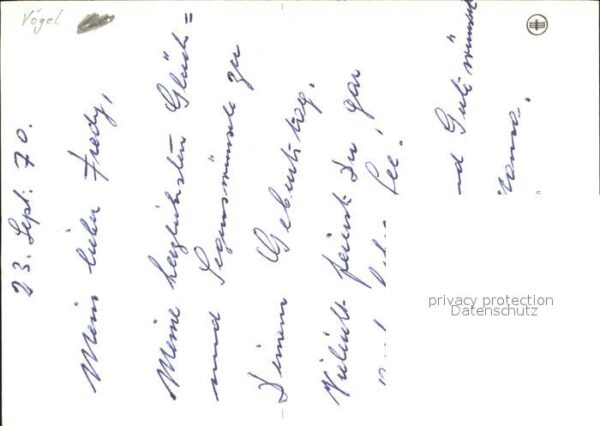 Vögel
23. Sept. 70.
Mein lieber Fredy,
Meine herzlichsten Glück=
und Segenswünsche zu
Deinem Geburtstag.
Vielleicht feierst Du gar
See.
nd Gute wünscht
privacy protection
Datenschutz